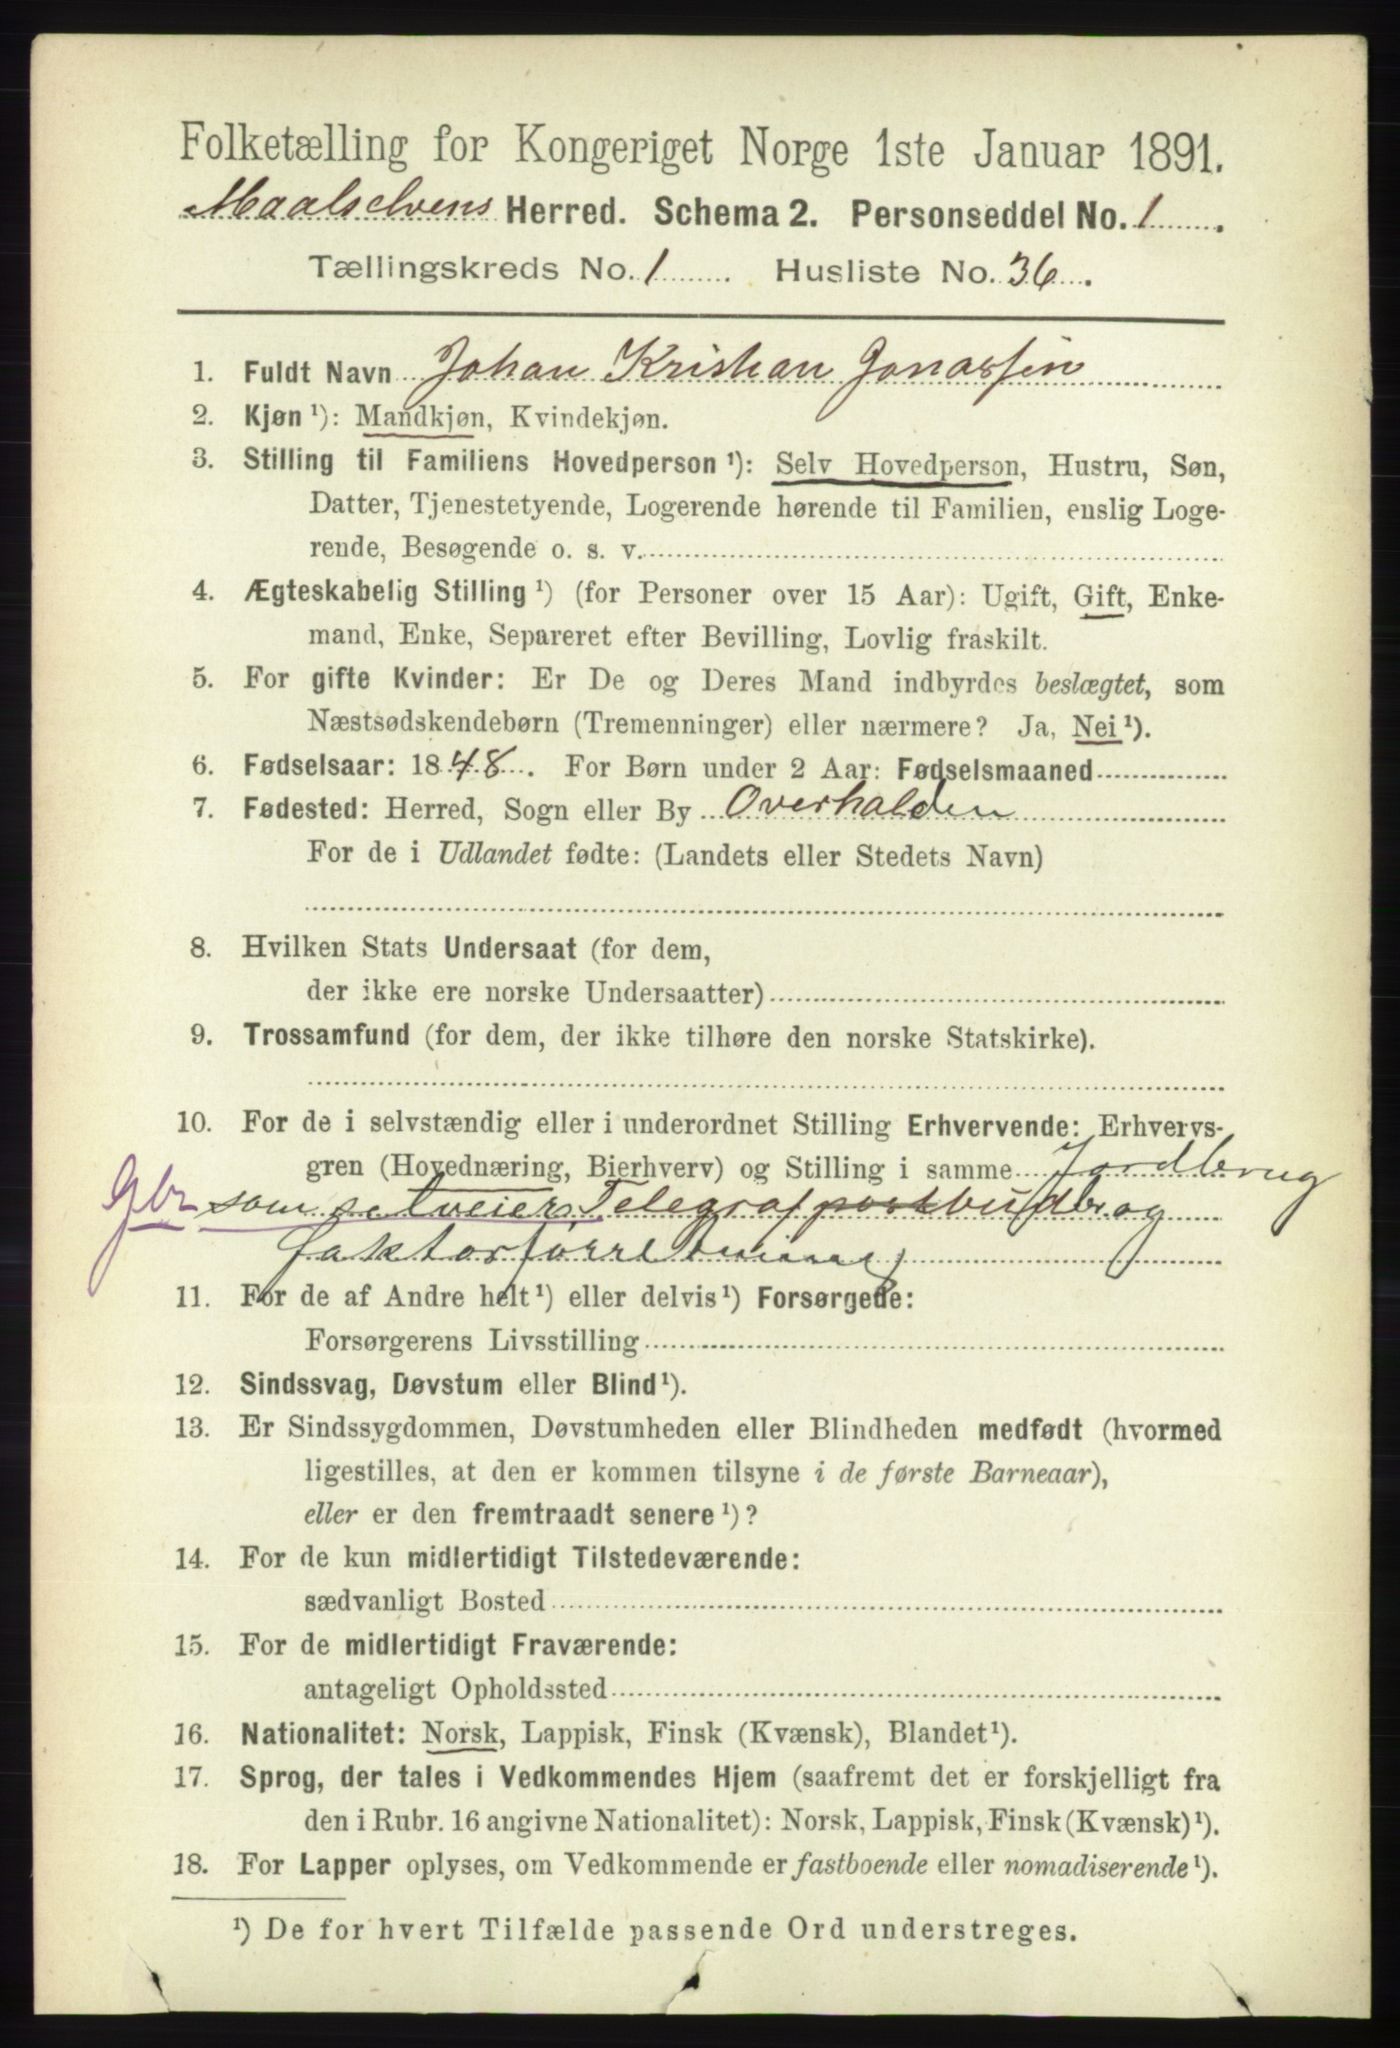 Folketælling for Kongeriget Norge 1ste Januar 1891.
Maalselvens Herred. Schema 2. Personseddel No. 1.
Tællingskreds No. 1. Husliste No. 36.
1. Fuldt Navn Johan Kristian Jonassen
2. Kjøn ¹): Mandkjøn, Kvindekjøn.
3. Stilling til Familiens Hovedperson ¹): Selv Hovedperson, Hustru, Søn,
Datter, Tjenestetyende, Logerende hørende til Familien, enslig Loge-
rende, Besøgende o. s. v.
4. Ægteskabelig Stilling ¹) (for Personer over 15 Aar): Ugift, Gift, Enke-
mand, Enke, Separeret efter Bevilling, Lovlig fraskilt.
5. For gifte Kvinder: Er De og Deres Mand indbyrdes beslægtet, som
Næstsødskendebørn (Tremenninger) eller nærmere? Ja, Nei ¹).
6. Fødselsaar: 1848. For Børn under 2 Aar: Fødselsmaaned
7. Fødested: Herred, Sogn eller By Overhalden
For de i Udlandet fødte: (Landets eller Stedets Navn)
8. Hvilken Stats Undersaat (for dem,
der ikke ere norske Undersaatter)
9. Trossamfund (for dem, der ikke tilhøre den norske Statskirke).
10. For de i selvstændig eller i underordnet Stilling Erhvervende: Erhvervs-
gren (Hovednæring, Bierhverv) og Stilling i samme Jordbrug
Gbr som selveier, Telegrafpostbud og
faktorforretning
11. For de af Andre helt ¹) eller delvis ¹) Forsørgede:
Forsørgerens Livsstilling
12. Sindssvag, Døvstum eller Blind ¹).
13. Er Sindssygdommen, Døvstumheden eller Blindheden medfødt (hvormed
ligestilles, at den er kommen tilsyne i de første Barneaar),
eller er den fremtraadt senere ¹)?
14. For de kun midlertidigt Tilstedeværende:
sædvanligt Bosted
15. For de midlertidigt Fraværende:
antageligt Opholdssted
16. Nationalitet: Norsk, Lappisk, Finsk (Kvænsk), Blandet ¹).
17. Sprog, der tales i Vedkommendes Hjem (saafremt det er forskjelligt fra
den i Rubr. 16 angivne Nationalitet): Norsk, Lappisk, Finsk (Kvænsk) ¹).
18. For Lapper oplyses, om Vedkommende er fastboende eller nomadiserende ¹).
¹) De for hvert Tilfælde passende Ord understreges.